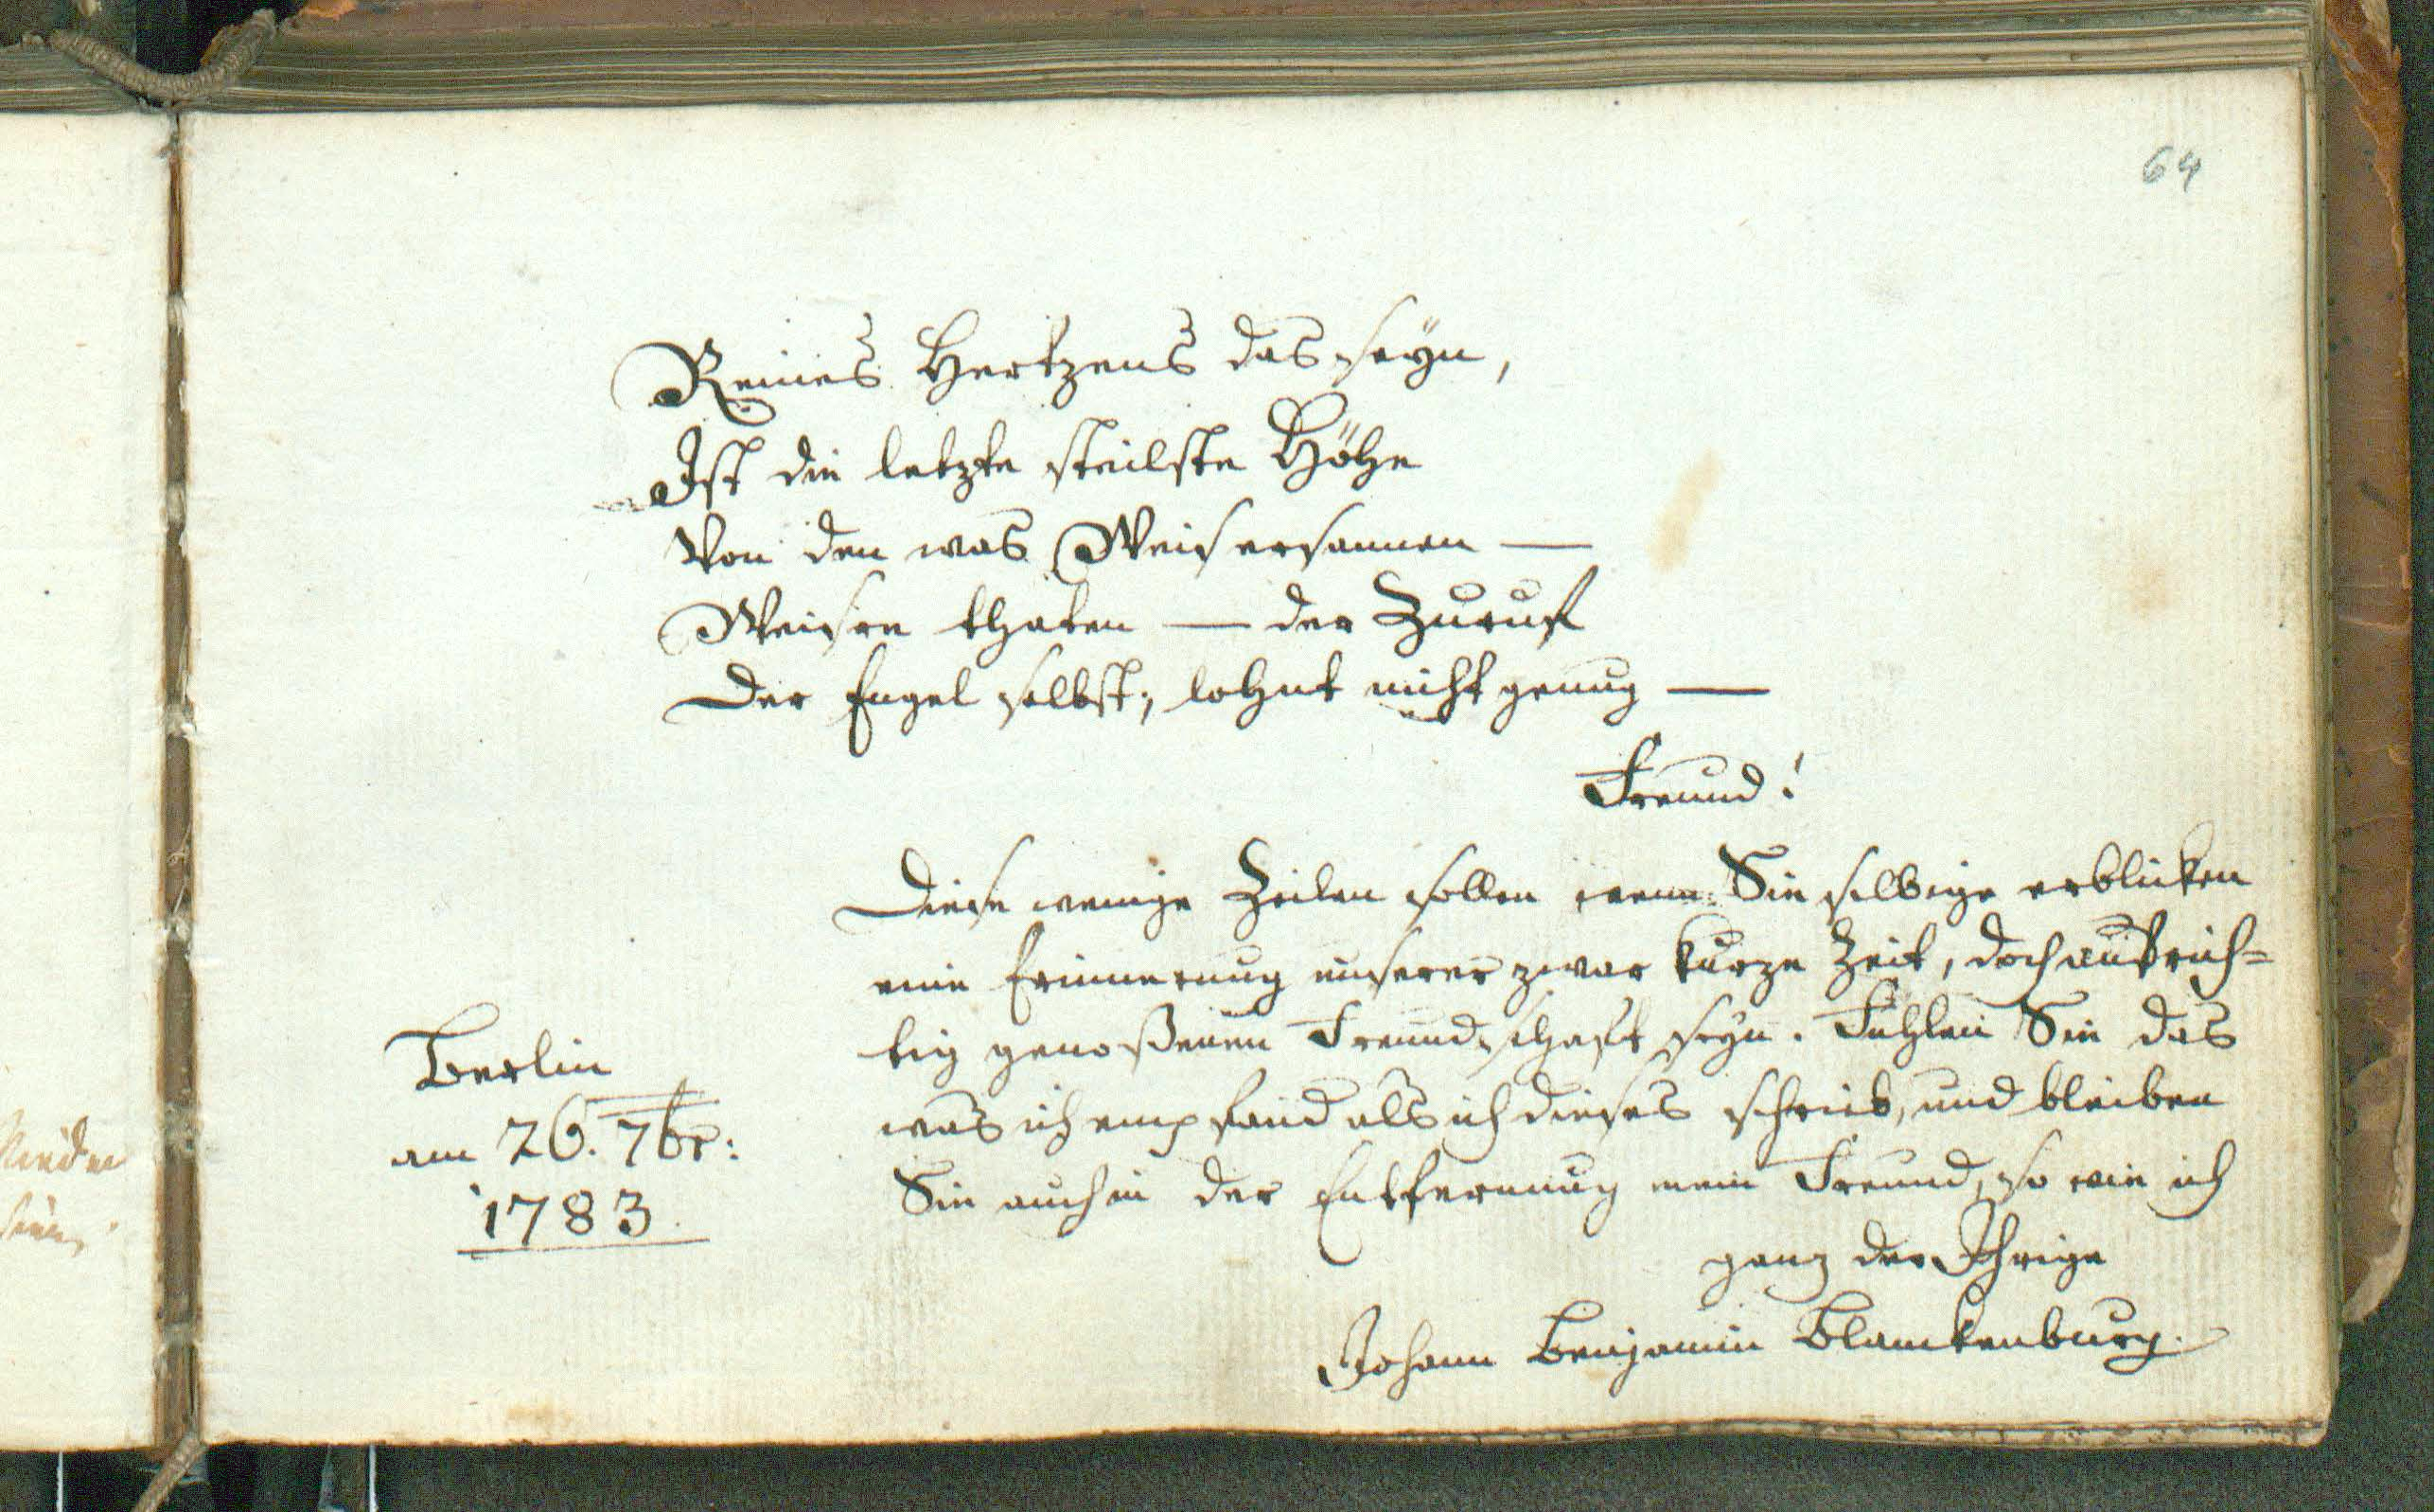 64
Reines Hertzens das seÿn,
Ist die letzte steilste Höhe
Von den was Weis ersannen —
Weisre thaten — der Zuruf
Der Engel selbst, lohnt nicht genug —
Freund!
Diese wenige Zeilen sollen wenn Sie selbige erblicken
eine Erinnerung unserer zwar kurze Zeit, doch aufrich=
tig genoßenen Freundschaft seÿn. Fühlen Sie das
was ich empfand als ich dieses schrieb, und bleiben
Sie auch in der Entfernung mein Freund, so wie ich
ganz der Ihrige
Johann Benjamin Blanckenburg.
Berlin
am 26. 7br:
1783.